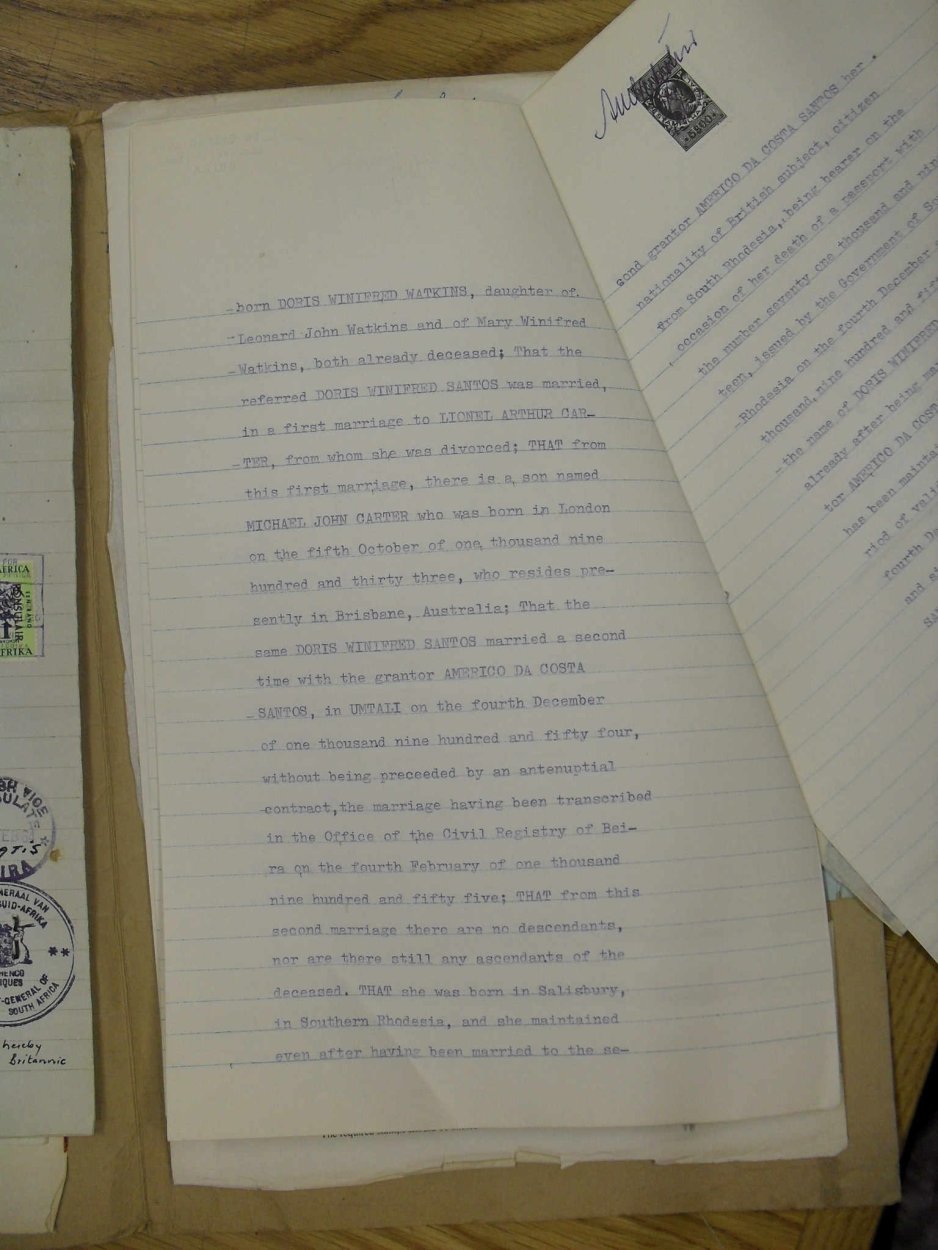 born DORIS WINIFRED WATKINS, daughter of.
Leonard John Watkins and of Mary Winifred
Watkins, both already deceased; That the
referred DORIS WINIFRED SANTOS was married,
in a first marriage to LIONEL ARTHUR CAR-
TER, from whom she was divorced; THAT from
this first marriage, there is a son named
MICHAEL JOHN CARTER who was born in London
on the fifth October of one thousand nine
hundred and thirty three, who resides pre-
sently in Brisbane, Australia; That the
same DORIS WINIFRED SANTOS married a second
time with the grantor AMERICO DA COSTA
SANTOS, in UMTALI on the fourth December
of one thousand nine hundred and fifty four,
without being preceeded by an antenuptial
contract, the marriage having been transcribed
in the Office of the Civil Registry of Bei-
ra on the fourth February of one thousand
nine hundred and fifty five; THAT from this
second marriage there are no descendants,
nor are there still any ascendants of the
deceased. THAT she was born in Salisbury,
in Southern Rhodesia, and she maintained
even after having been married to the se-
cond grantor AMERICO DA COSTA SANTOS her
nationality of British subject, citizen
from South Rhodesia, being bearer on the
occasion of her death of a passport with
the number seventy one thousand and nin
teen, issued by the Government of So
Rhodesia on the fourth December
thousand nine hundred and fif
the name of DORIS WINIFRED
already after being ma
tor AMERICO DA COST
has been maintai
riod of vali
fourth De
and si
SAN
AFRICA
AFRIKA
IRA
NERAAL VAN
SUID-AFRIKA
RENCO
IQUES
-GENERAL OF
SOUTH AFRICA
hereby
Britannic